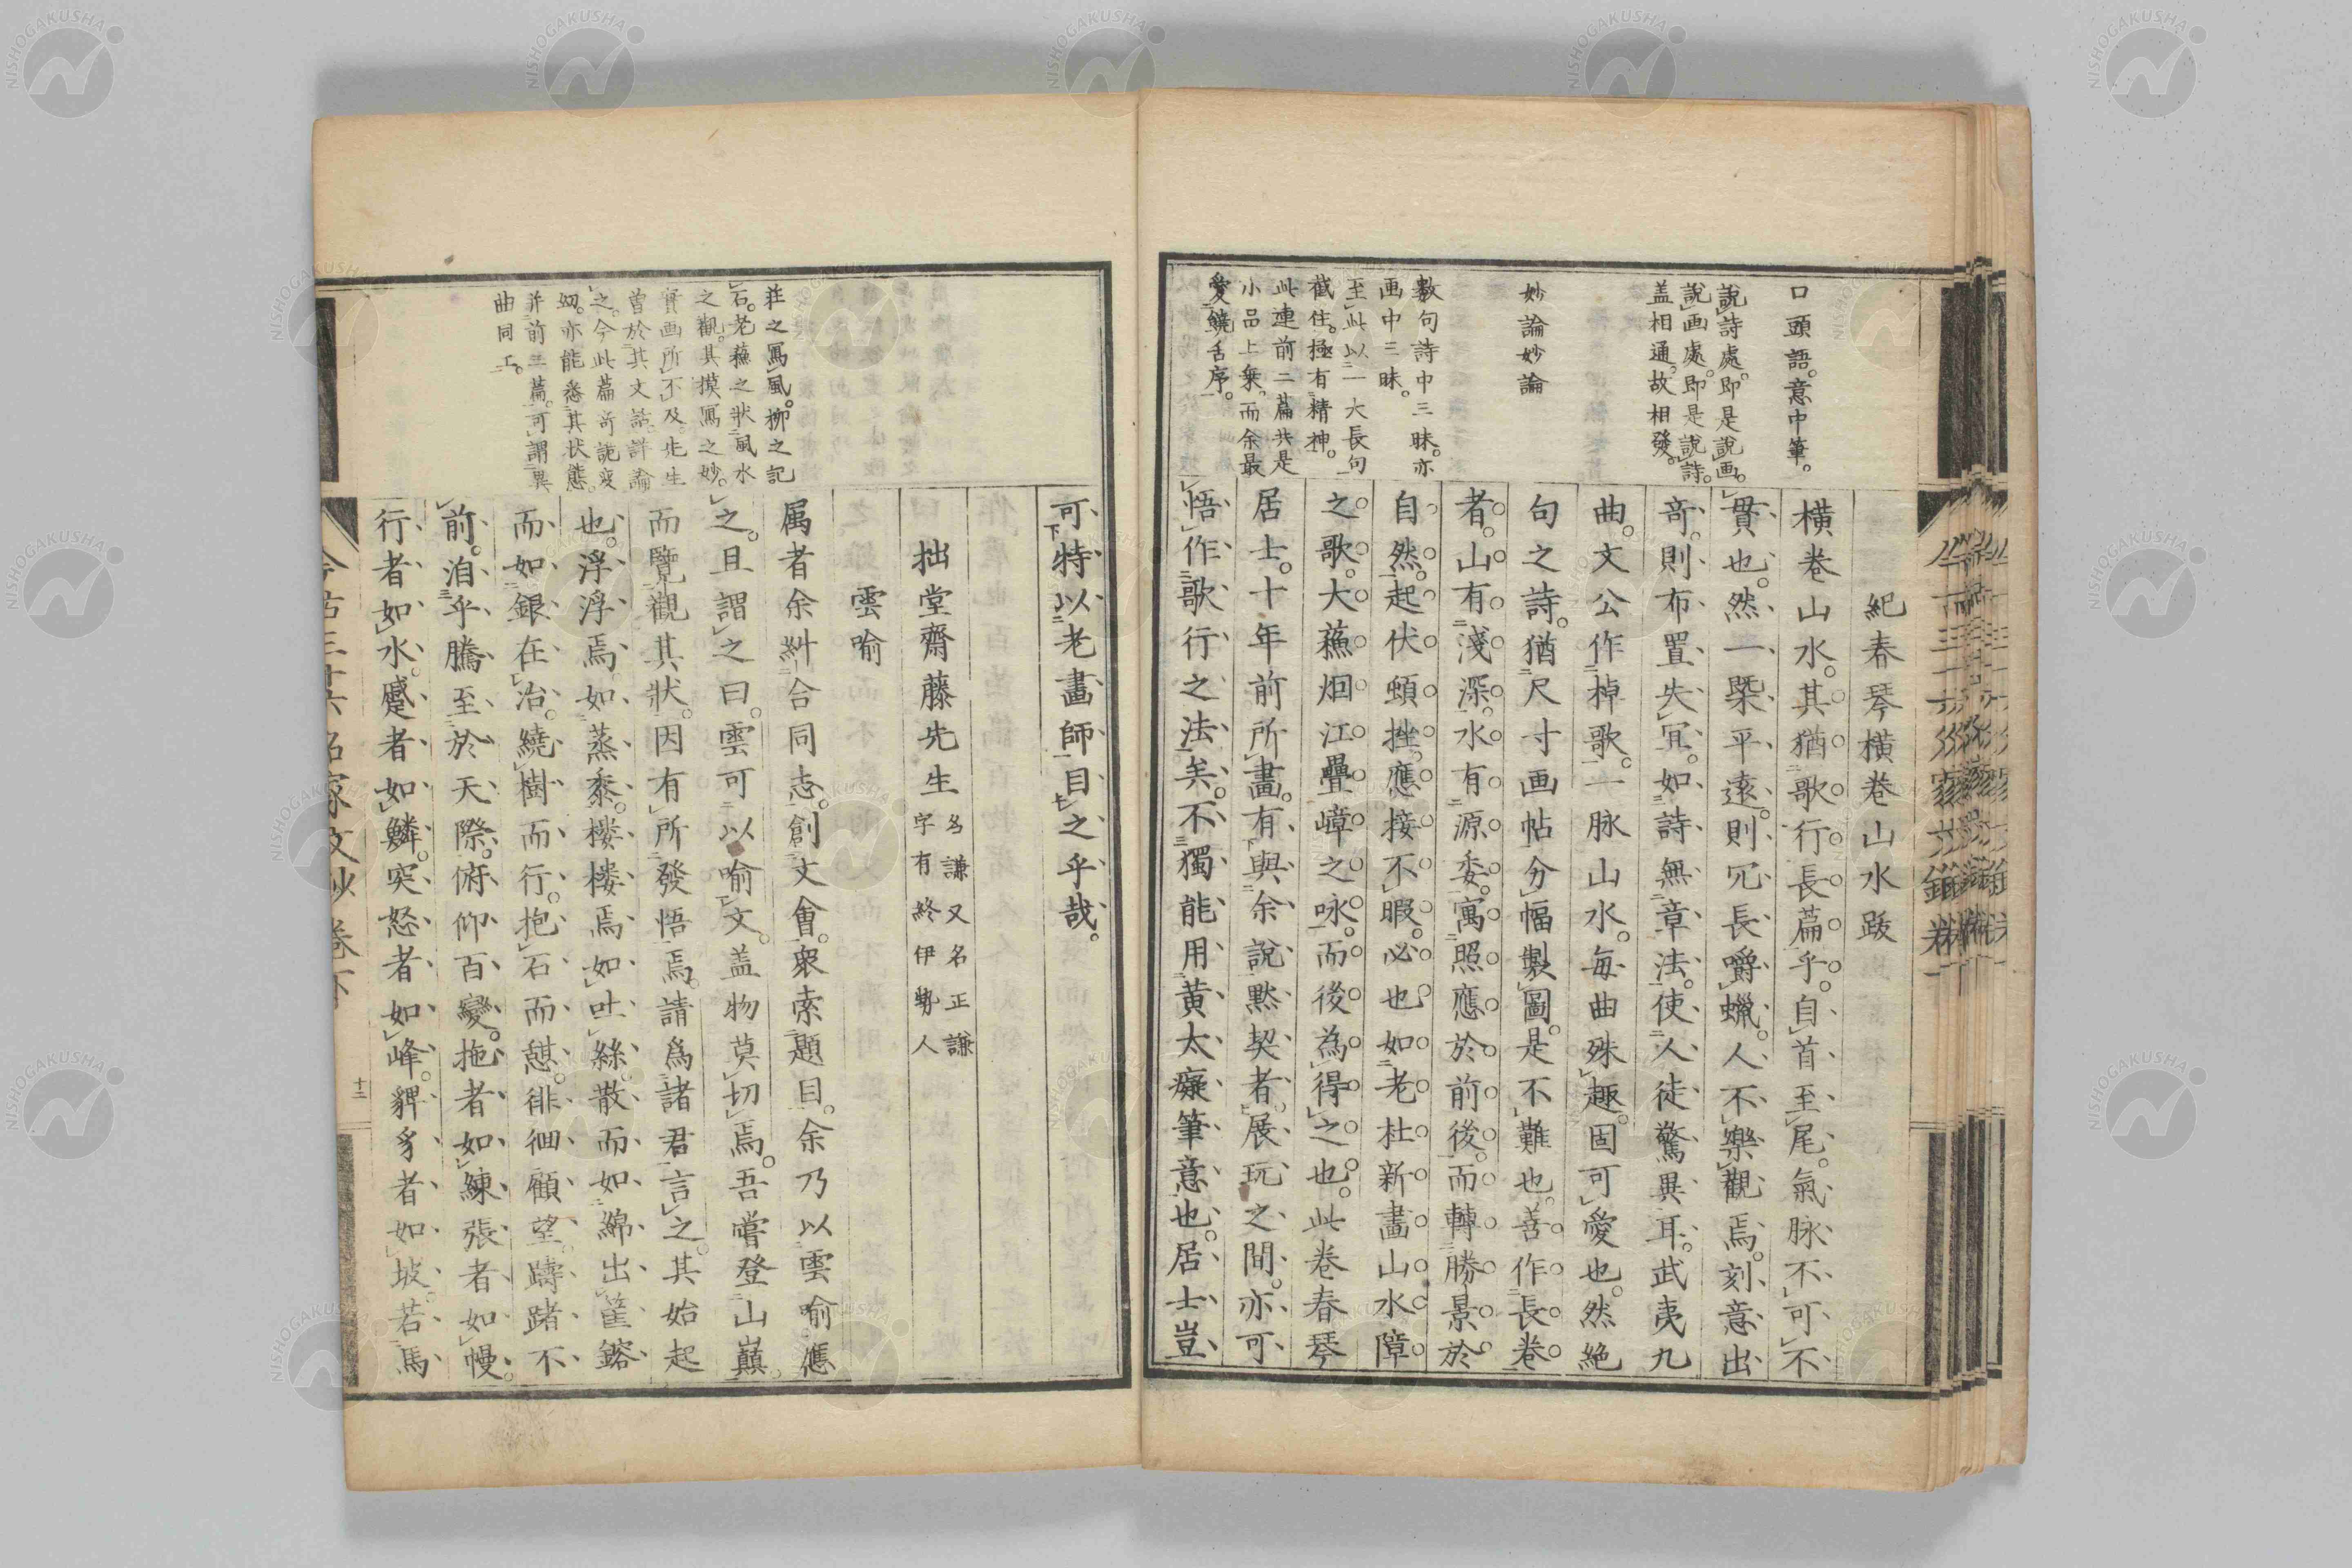 口頭語。意中筆。
說詩處。即是說画。
說画處。即是說詩。
盖相通。故相發。
妙論妙論
數句詩中三昧。亦
画中三昧。
至此以一大長句
截住。極有精神。
此連前二篇共是
小品上乗。而余最
愛饒舌序。
紀春琴横巻山水跋
横巻山水。其猶歌行長篇乎。自首至尾。氣脉不可不
貫也。然一槩平遠。則冗長嚼蠟。人不樂觀焉。刻意出
竒。則布置失宜。如詩無章法。使人徒驚異耳。武夷九
曲。文公作棹歌。一脉山水。毎曲殊趣。固可愛也。然絶
句之詩。猶尺寸画帖分幅製圖。是不難也。善作長巻
者。山有淺深。水有源委。寓照應於前後。而轉勝景於
自然。起伏頓挫。應接不暇。必也如老杜新畫山水障
之歌。大蘓烟江疊嶂之咏。而後為得之也。此巻春琴
居士。十年前所畫。有與余說黙契者。展玩之間。亦可
悟作歌行之法矣。不獨能用黄太癡筆意也。居士豈
可特以老畫師目之乎哉。
拙堂齋藤先生
名謙又名正謙
字有終伊勢人
雲喻
属者余糾合同志。創文會。衆索題目。余乃以雲喻應
之。且謂之曰。雲可以喻文。盖物莫切焉。吾嘗登山巔。
而覽觀其狀。因有所發悟焉。請爲諸君言之。其始起
也。浮浮焉如蒸黍。搂搂焉如吐絲。散而如綿出筐。鎔
而如銀在冶。繞樹而行。抱石而憩。徘徊顧望。躊躇不
前。洎乎騰至於天際。俯仰百變。拖者如練。張者如幔。
行者如水。蹙者如鱗。突怒者如峰。貏豸者如坡。若馬
莊之寫風。栁之記
石。老蘓之狀風水
之觀。其摸寫之妙。
實画所不及。先生
曽於其文話詳論
之。今此篇竒詭変
幻。亦能悉其状態。
并前三篇。可謂異
曲同工。
今古三十六名家文鈔巻下
十三